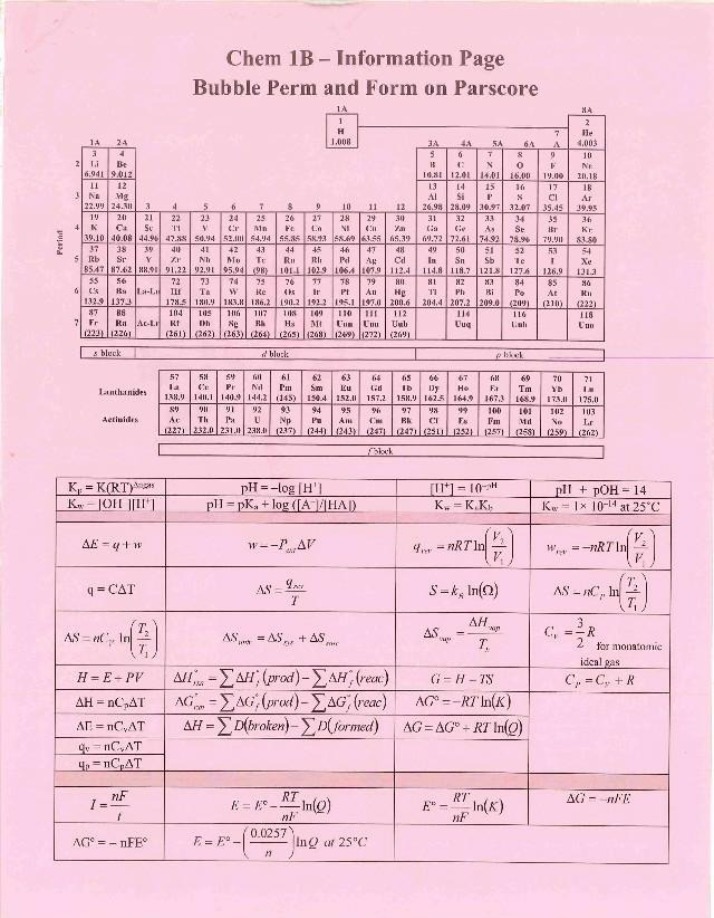 Chem 1B – Information Page
Bubble Perm and Form on Parscore
1A 8A
1 2
H 7 He
1.008 3A 4A 5A 6A A 4.003
1A 2A
3 4 5 6 7 8 9 10
2 Li Be B C N O F Ne
6.941 9.012 10.81 12.01 14.01 16.00 19.00 20.18
11 12 13 14 15 16 17 18
3 Na Mg Al Si P S Cl Ar
22.99 24.30 3 4 5 6 7 8 9 10 11 12 26.98 28.09 30.97 32.07 35.45 39.95
19 20 21 22 23 24 25 26 27 28 29 30 31 32 33 34 35 36
4 K Ca Sc Ti V Cr Mn Fe Co Ni Cu Zn Ga Ge As Se Br Kr
39.10 40.08 44.96 47.88 50.94 52.00 54.94 55.85 58.93 58.69 63.55 65.39 69.72 72.61 74.92 78.96 79.90 83.80
Period
37 38 39 40 41 42 43 44 45 46 47 48 49 50 51 52 53 54
5 Rb Sr Y Zr Nb Mo Tc Ru Rh Pd Ag Cd In Sn Sb Te I Xe
85.47 87.62 88.91 91.22 92.91 95.94 (98) 101.1 102.9 106.4 107.9 112.4 114.8 118.7 121.8 127.6 126.9 131.3
55 56 72 73 74 75 76 77 78 79 80 81 82 83 84 85 86
6 Cs Ba La-Lu Hf Ta W Re Os Ir Pt Au Hg Tl Pb Bi Po At Rn
132.9 137.3 178.5 180.9 183.8 186.2 190.2 192.2 195.1 197.0 200.6 204.4 207.2 209.0 (209) (210) (222)
87 88 104 105 106 107 108 109 110 111 112 114 116 118
7 Fr Ra Ac-Lr Rf Db Sg Bh Hs Mt Uun Uuu Uub Uuq Uuh Uuo
(223) (226) (261) (262) (263) (264) (265) (268) (269) (272) (269)
s block d block p block
57 58 59 60 61 62 63 64 65 66 67 68 69 70 71
Lanthanides La Ce Pr Nd Pm Sm Eu Gd Tb Dy Ho Er Tm Yb Lu
138.9 140.1 140.9 144.2 (145) 150.4 152.0 157.2 158.9 162.5 164.9 167.3 168.9 173.0 175.0
89 90 91 92 93 94 95 96 97 98 99 100 101 102 103
Actinides Ac Th Pa U Np Pu Am Cm Bk Cf Es Fm Md No Lr
(227) 232.0 231.0 238.0 (237) (244) (243) (247) (247) (251) (252) (257) (258) (259) (262)
f block
Kp = K(RT)^Δngas pH = –log [H⁺] [H⁺] = 10^–pH pH + pOH = 14
Kw = [OH⁻][H⁺] pH = pKa + log ([A⁻]/[HA]) Kw = KaKb Kw = 1× 10⁻¹⁴ at 25°C
ΔE = q + w w = –P_ext ΔV q_rev = nRT ln(V₂/V₁) w_rev = –nRT ln(V₂/V₁)
q = CΔT ΔS = q_rev/T S = k_B ln(Ω) ΔS = nC_P ln(T₂/T₁)
ΔS = nC_V ln(T₂/T₁) ΔS_univ = ΔS_sys + ΔS_surr ΔS_vap = ΔH_vap/T_b C_v = 3/2 R for monatomic
ideal gas
H = E + PV ΔH°_rxn = ∑ΔH°_f (prod) – ∑ΔH°_f (reac) G = H – TS C_P = C_V + R
ΔH = nCpΔT ΔG°_rxn = ∑ΔG°_f (prod) – ∑ΔG°_f (reac) ΔG° = –RT ln(K)
ΔE = nCvΔT ΔH = ∑D(broken) – ∑D(formed) ΔG = ΔG° + RT ln(Q)
qv = nCvΔT
qp = nCpΔT
I = nF/t E = E° – RT/nF ln(Q) E° = RT/nF ln(K) ΔG = –nFE
ΔG° = – nFE° E = E° – (0.0257/n) ln Q at 25°C